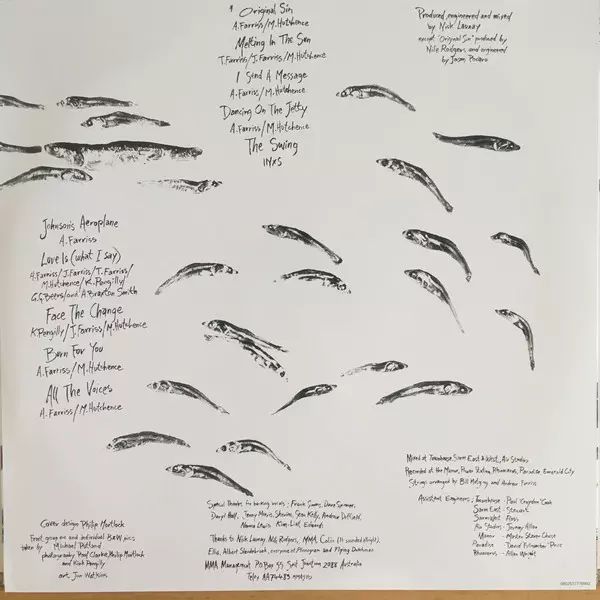 Original Sin
A. Farriss/M. Hutchence
Melting In The Sun
T. Farriss/J. Farriss/M. Hutchence
I Send A Message
A. Farriss/M. Hutchence
Dancing On The Jetty
A. Farriss/M. Hutchence
The Swing
INXS
Produced, engineered and mixed
by Nick Launay
except "Original Sin" produced by
Nile Rodgers, and engineered
by Jason
Johnson's Aeroplane
A. Farriss
Love Is (what I say)
A. Farriss/J. Farriss/T. Farriss/
M. Hutchence/K. Pengilly/
G.G. Beers/and A. Braxton Smith
Face The Change
K. Pengilly/J. Farriss/M. Hutchence
Burn For You
A. Farriss/M. Hutchence
All The Voices
A. Farriss/M. Hutchence
Mixed at Townhouse, Sarm East & West, Air Studios
Recorded at the Manor, Power Station, Rhinoceros, Paradise, Emerald City
Strings arranged by and Andrew Farriss
Assistant Engineers; Townhouse - Paul
Sarm East - Stewart
Sarm West - Ross
Air Studios - Jeremy Allom
Manor - Chase
Paradise - David Price
Rhinoceros - Allan Wright
Special Thanks for backing vocals:
Daryl Hall, Jenny Morris, Sean Kelly,
Thanks to Nick Launay, Nile Rodgers, MMA,
and Flying Dutchman
MMA Management P.O. Box 55 Australia
Cover design Philip Mortlock
Front group and individual B&W pics
taken by Michael Putland
photography Paul Clarke, Philip Mortlock
and Kirk Pengilly
art. Jim Watkins